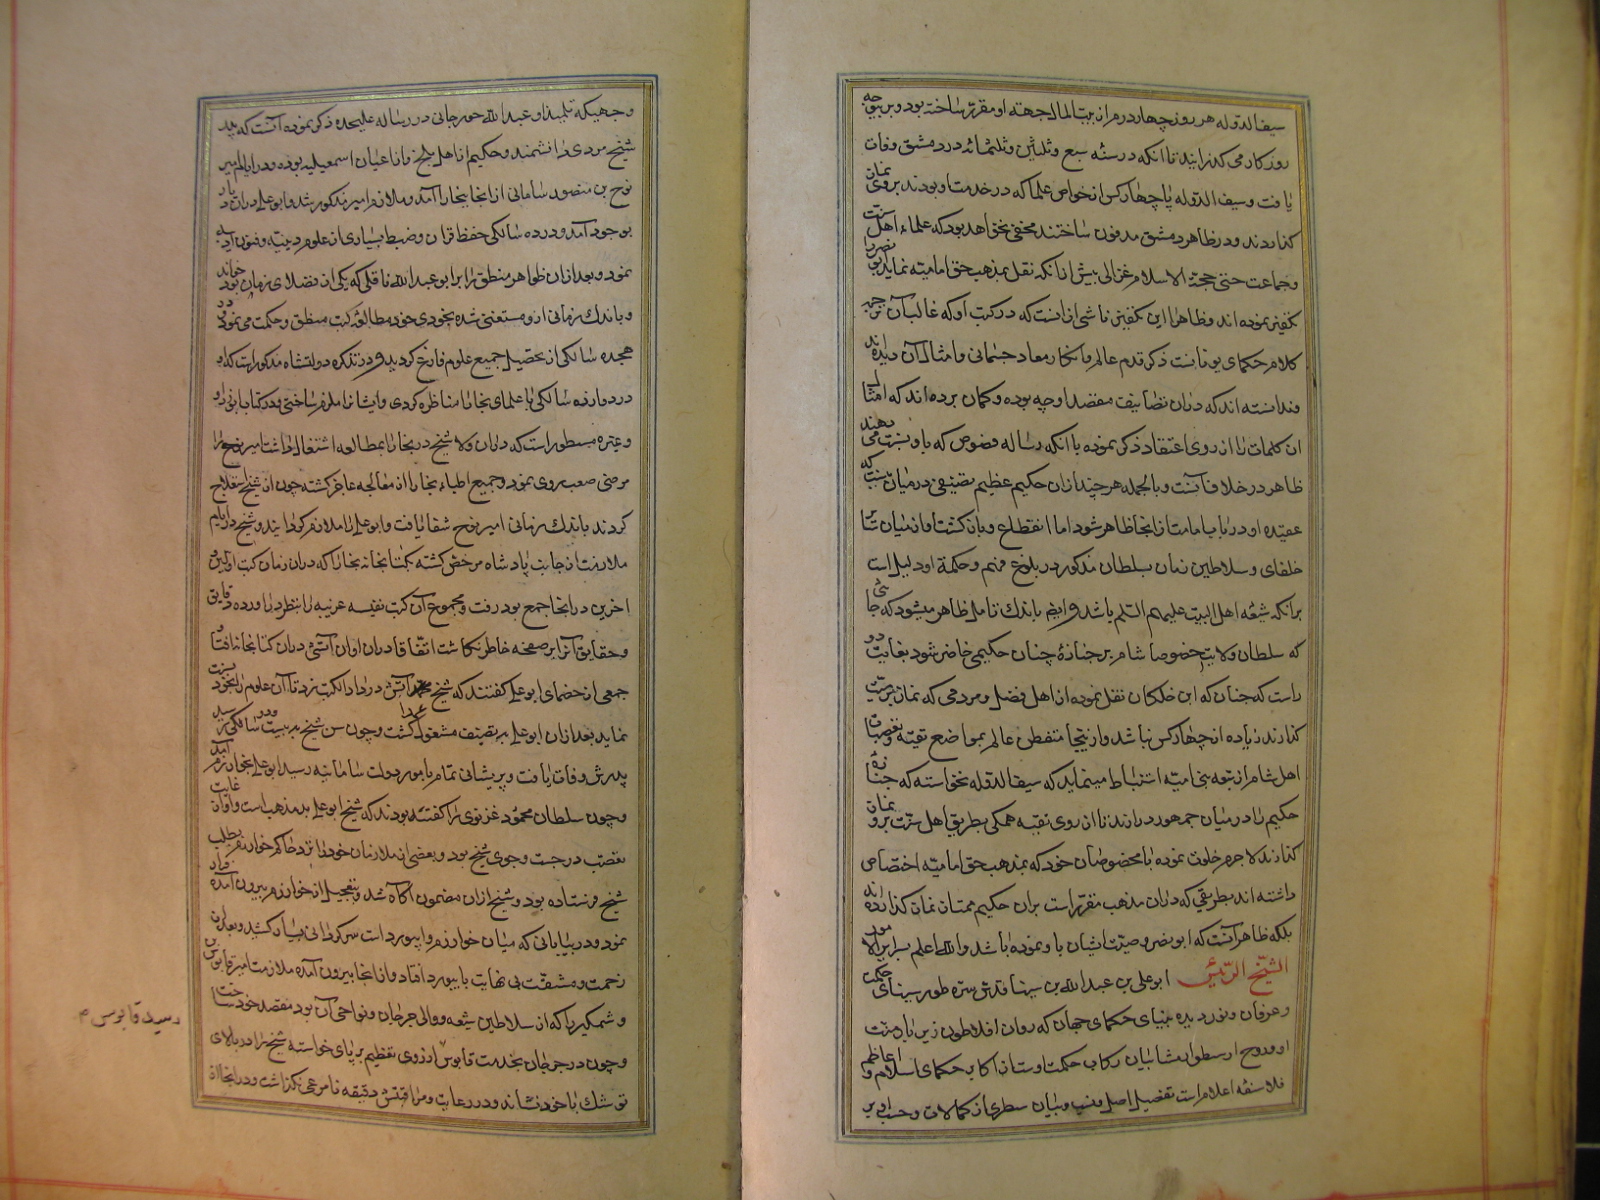 سیف الدوله هر روز چهار درم از بیت المال جهته او مقرر ساخته بود و بر بوجه
روزگار می گذرانید تا آنکه در سنه سبع و ثلثین و ثلثمائه در دمشق وفات
یافت و سیف الدوله با چهار کس از خواص علما که در خدمت او بودند بروی نماز
گذاردند و در ظاهر دمشق مدفون ساختند مخفی نخواهد بود که علماء اهل سنت
و جماعت حتی حجة الاسلام غزالی پیش از آنکه نقل بمذهب حق امامیه نماید
تکفیر نموده اند و ظاهرا این تکفیر ناشی از انست که در کتب او که غالب آن
کلام حکمای یونانست ذکر قدم عالم و انکار معاد جسمانی و امثال آن دیده اند
و ندانسته اند که دران تصانیف مقصد او چه بوده و گمان برده اند که امثال
ان کلمات را از روی اعتقاد ذکر نموده با آنکه رساله فصوص که باو نسبت می دهند
ظاهر در خلاف آنست و بالجمله هر چند ازان حکیم عظیم تصنیفی در میان نیست که
عقیده او در باب امامت ازانجا ظاهر شود اما انقطاع و بازگشت او از میان
خلفای و سلاطین زمان بسلطان مذکور در بلوغ فهم و حکمة او دلیل است
برانکه شیعه اهل البیت علیهم السلم باشد و ایضا باندک تامل ظاهر میشود که جائی
که سلطان ولایت خصوصا شام بر جنازه چنان حکیمی حاضر شود بغایت دور
است که چنان که ابن خلکان نقل نموده از اهل فضل و مردمی که نماز بر میت
گذارند زیاده از چهار کس نباشد و ازینجا متفطن عالم بمواضع تقیه و تعصبات
اهل شام از بقیه بنی امیه استنباط مینماید که سیف الدوله نخواسته که جنازه
حکیم را در میان جمهور در ارند تا از روی تقیه همگی بطریق اهل سنت برو نماز
گذارند لاجرم خلوت نموده با مخصوصان خود که بمذهب حق امامیه اختصاص
داشته اند بطریقی که دران مذهب مقرر است بران حکیم ممتاز نماز گذارده اند
بلکه ظاهر آنست که ابو نصر وصیت ایشان باو نموده باشد والله اعلم بسرایر الامور
الشیخ الرئیس ابو علی بن عبدالله بن سینا قدس سره طور سینای حکمت
و عرفان و نور دیده بینای حکمای جهان که روان افلاطون زیر بار منت
او و روح ارسطو از مشائیان رکاب حکمت اوست از اکابر حکمای اسلام و اعاظم
فلاسفه اعلام است تفصیل اصل و نسب و بیان سطری از کمالات و حسب او بر
وجهیکه تلمیذ او عبد الله جورجانی در رساله علیحده ذکر نموده آنست که پدر
شیخ مردی دانشمند و حکیم از اهل بلخ و از اعیان اسمعیلیه بوده و در ایام امیر
نوح بن منصور سامانی از انجا ببخارا آمد و ملازم امیر مذکور شد و ابو علی دران دیار
بوجود آمد و در ده سالکی حفظ قران و ضبط بسیاری از علوم دینیه و فنون ادبیه
نمود و بعد ازان ظواهر منطق را بر ابو عبد الله ناتلی که یکی از فضلای زمان بود خواند
و باندک زمانی ازو مستغنی شده بخودی خود مطالعه کتب منطق و حکمت می نمود و در
هجده سالکی از تحصیل جمیع علوم فارغ کردید و در تذکره دولتشاه مذکور است که او
در دوازده سالکی با علمای بخارا مناظره کردی و ایشانرا ملزم ساختی و در کتاب
و غیره مسطور است که دران ولا شیخ در بخارا بمطالعه اشتغال داشت امیر نوح را
مرضی صعب روی نمود و جمیع اطباء بخارا از معالجه عاجز کشته چون از شیخ استعلاج
کردند باندک زمانی امیر نوح شفا یافت و ابو علی را ملازم کردانیدند و شیخ در ایام
ملازمت از جانب پادشاه مرخص کشته بکتابخانه بخارا که دران زمان کتب اولین و
اخرین درانجا جمع بود رفت و مجموع آن کتب نفیسه غریبه را بنظر در اورده دقایق
و حقایق آنرا بر صفحه خاطر نگاشت اتفاقا دران اوان آتشی دران کتابخانه افتاد و
جمعی از خصمای ابو علی کفتند که شیخ عمدا آتش در داد انکتب زد تا آن علوم را بخود نسبت
نماید بعد ازان ابو علی بر تصنیف مشغول کشت و چون سن شیخ به بیست و دو سالگی رسید
پدرش وفات یافت و پریشانی تمام بامور دولت سامانیه رسید ابو علی بخوارزم آمد
و چون سلطان محمود غزنوی را کفته بودند که شیخ ابو علی بد مذهب است و او از غایت
تعصب در جست و جوی شیخ بود و بعضی از ملازمان خود را نزد حاکم خوارزم بطلب
شیخ فرستاده بود و شیخ ازان مضمون آگاه شد و بتعجیل از خوارزم بیرون آمده فرار
نمود و در بیابانی که میان خوارزم و ابیورد است سرگردانی بسیار کشید و بعد از
زحمت و مشقت بی نهایت بابیورد افتاد و از انجا بیرون آمده ملازمت امیر قابوس
و شمکیر را که از سلاطین شیعه و والی جرجان و نواحی آن بود مقصد خود ساخت
و چون در جرجان بخدمت قابوس از روی تعظیم بر پای خواسته شیخ را در بالای
توشک با خود نشاند و در رعایت و مراقبتش دقیقه نامرعی نگذاشت و درانجا
رسید قابوس م